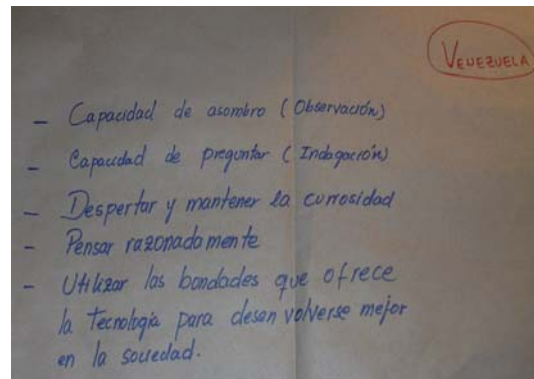 VENEZUELA
- Capacidad de asombro (Observación)
- Capacidad de preguntar (Indagación)
- Despertar y mantener la curiosidad
- Pensar razonadamente
- Utilizar las bondades que ofrece
la tecnología para desenvolverse mejor
en la sociedad.